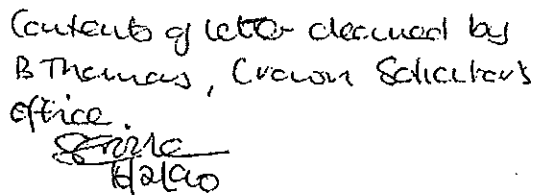 Contents of letter cleared by
B Thomas, Crown Solicitor's
office.
6/2/90